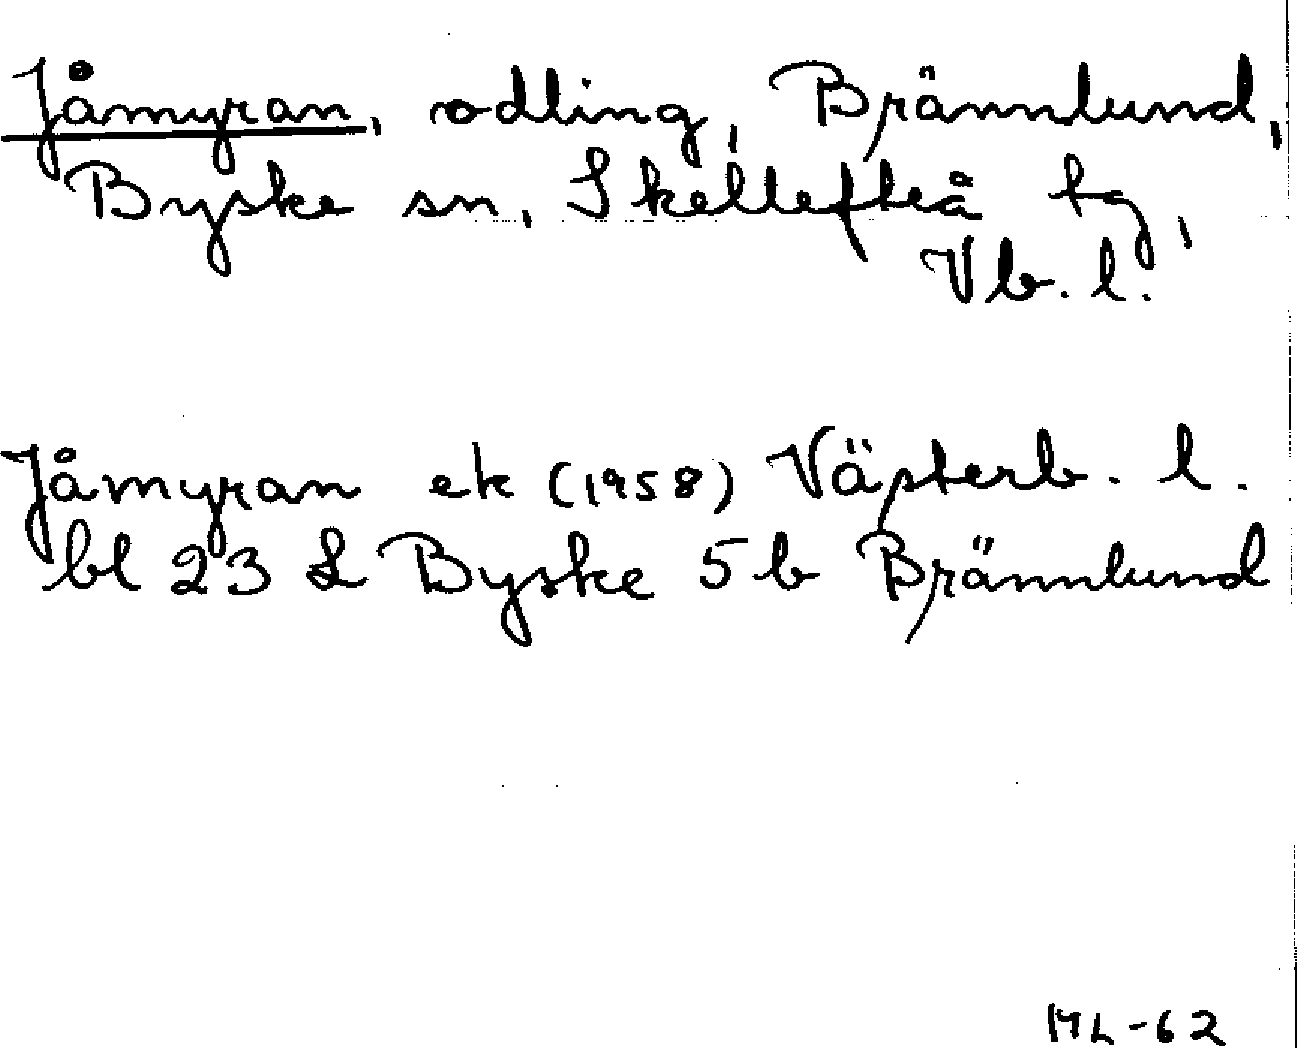 Jåmyran, odling, Brännlund,
Byske sn, Skellefteå tg,
Vb. l.
Jåmyran ek (1958) Västerb. l.
bl 23 L Byske 5 b Brännlund
ML-62